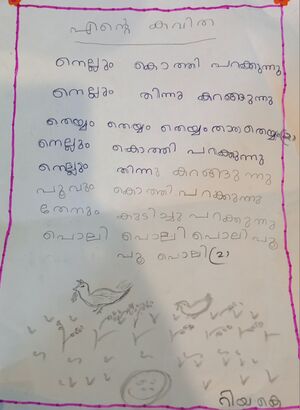 എന്റെ കവിത
നെല്ലും കൊത്തി പറക്കുന്നു
നെല്ലും തിന്നു കറങ്ങുന്നു
തെയ്യം തെയ്യം തെയ്യംതാരതെയ്യം(2)
നെല്ലും കൊത്തി പറക്കുന്നു
നെല്ലും തിന്നു കറങ്ങുന്നു
പൂവും കൊത്തി പറക്കുന്നു
തേനും കുടിച്ചു പറക്കുന്നു
പൊലി പൊലി പൊലി പൂ
പൂ പൊലി(2)
റിയ കെ